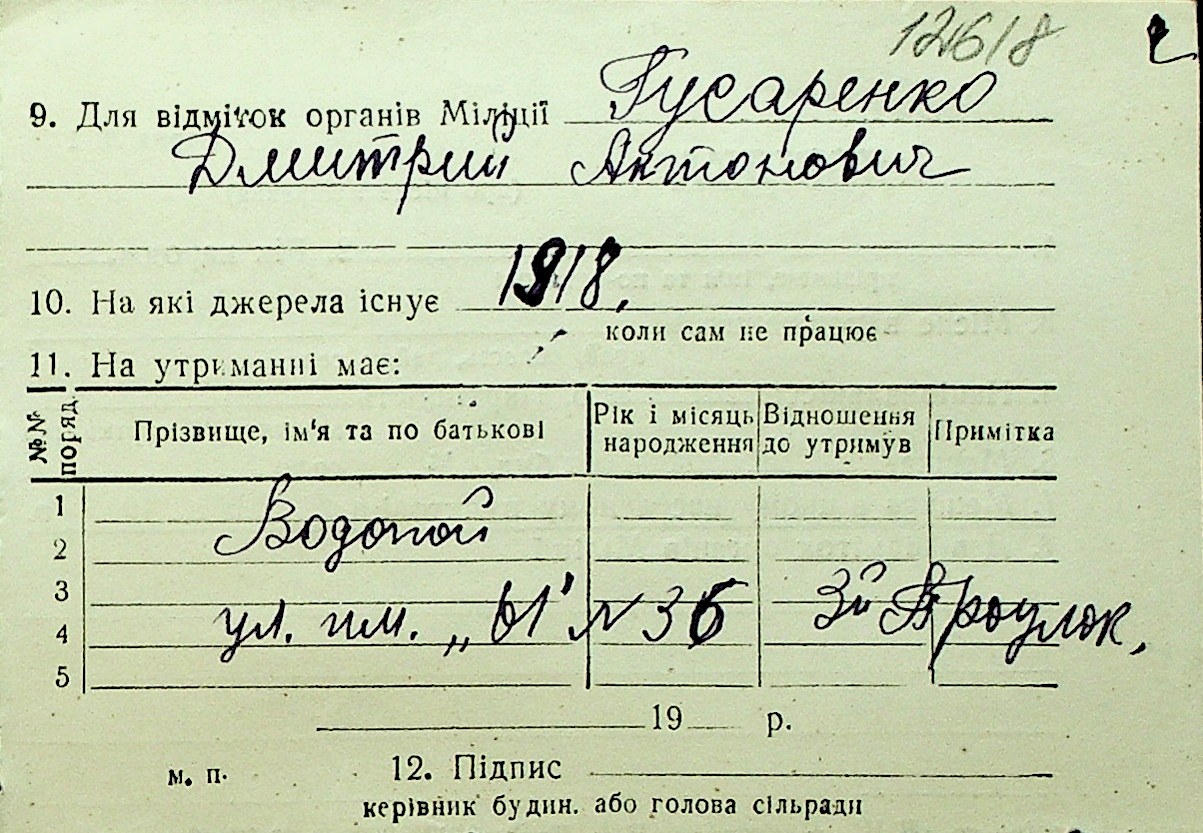 12618
9. Для відміток органів Міліції Гусаренко
Дмитрий Антонович
10. На які джерела існує 1918.
коли сам не працює
11. На утриманні має:
№№ поряд. Прізвище, ім'я та по батькові Рік і місяць народження Відношення до утримув Примітка
1
Водопой
2
3
ул. им. „61" № 36 3й Проулок,
4
5
19 р.
м. п. 12. Підпис
керівник будин. або голова сільради